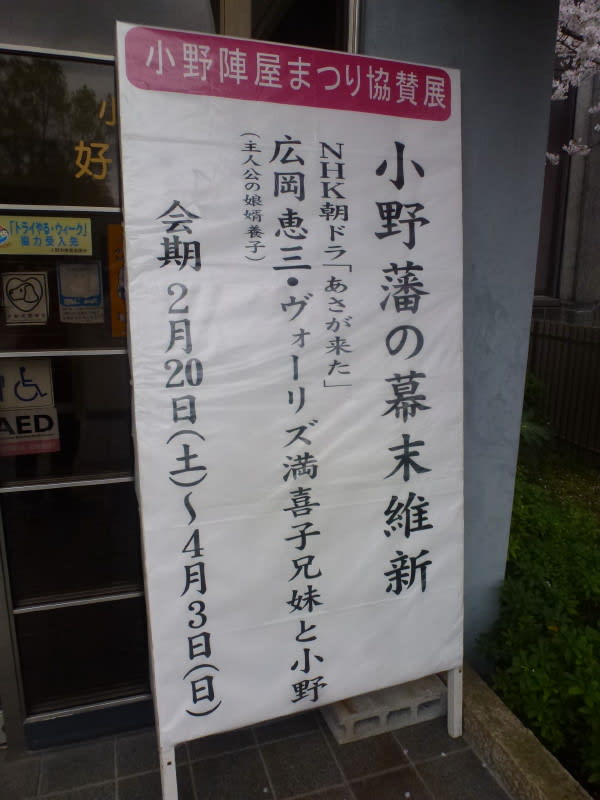 小野陣屋まつり協賛展
小野藩の幕末維新
NHK朝ドラ「あさが来た」
広岡恵三・ヴォーリズ満喜子兄妹と小野
(主人公の娘婿養子)
会期 2月20日(土)~4月3日(日)
小
好
「トライやる・ウィーク」
協力受入先
AED